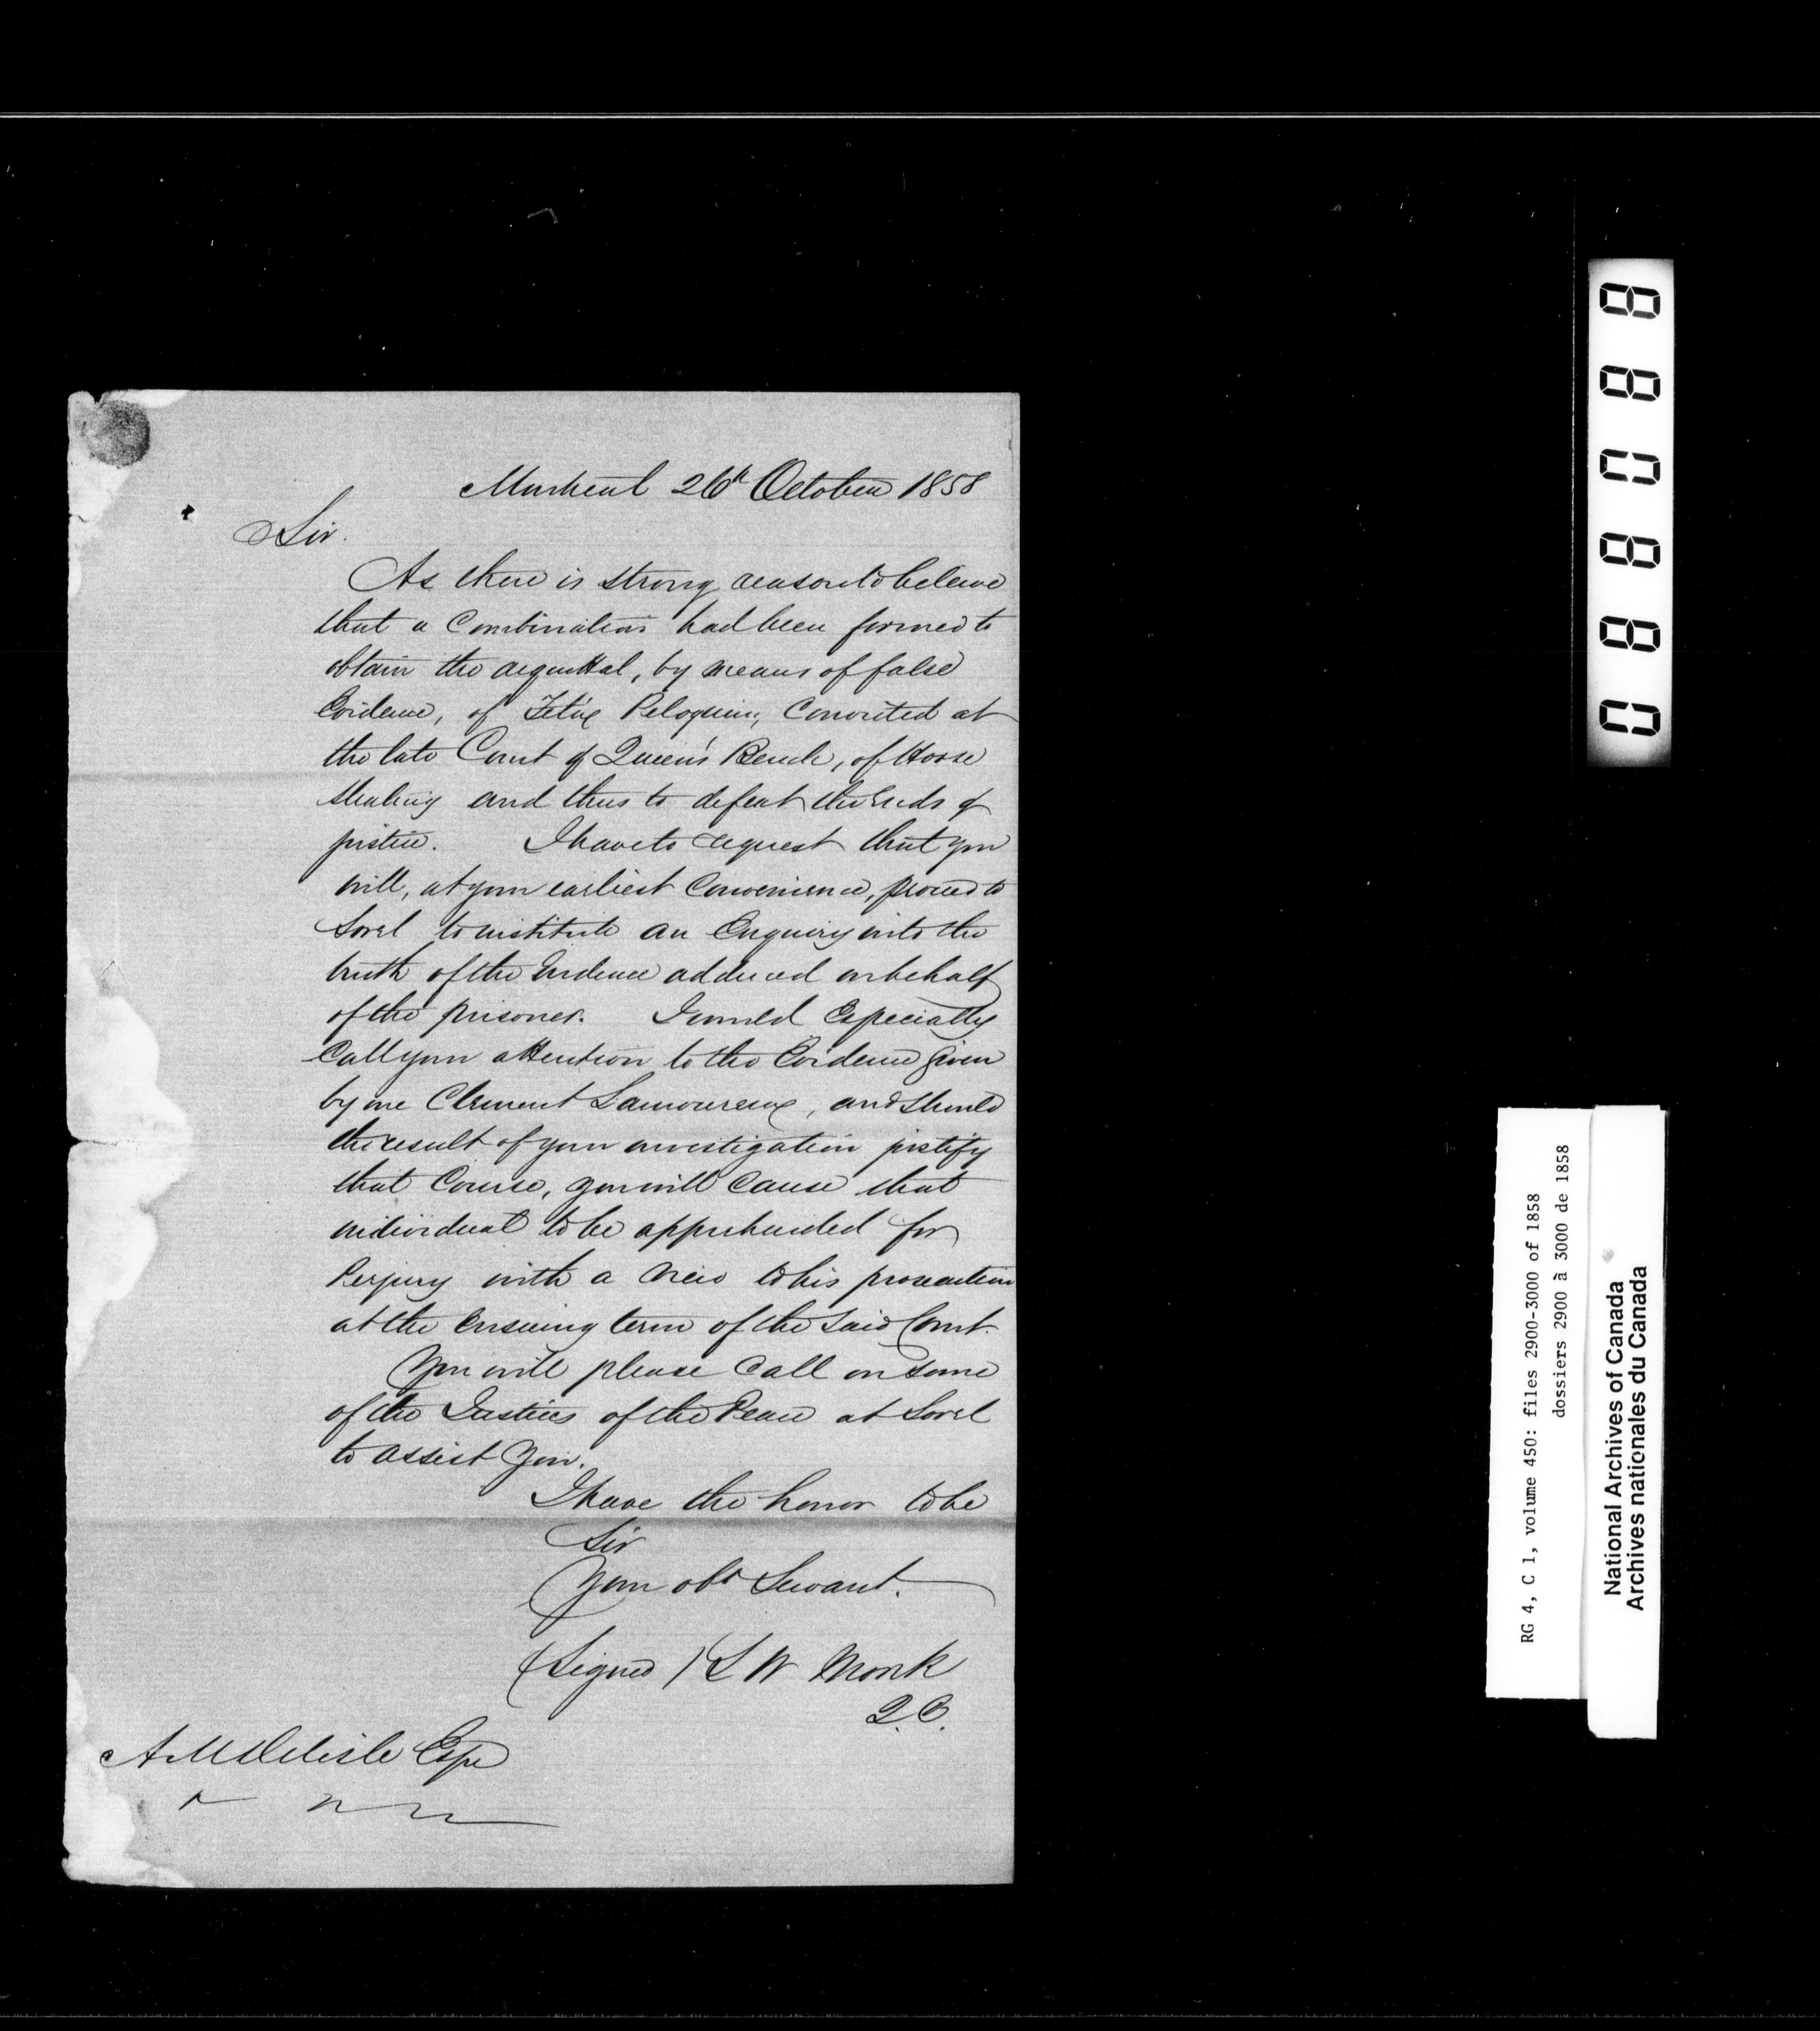 Montreal 26th October 1858
Sir.
As there is strong reason to beleive
that a Combination had been formed to
obtain the acquittal, by means of false
Evidence, of Felix Peloquin, Convicted at
the late Court of Queen's Bench, of Horse
stealing and thus to defeat the Ends of
justice. I have to request that you
will, at your earliest Convenience, proceed to
Sorel to institute an Enquiry into the
truth of the Evidence adduced on behalf
of the prisoner. I would Especially
Call your attention to the Evidence given
by one Clement Lamoureux, and should
the result of your investigation justify
that Course, you will Cause that
individual to be apprehended for
Perjury with a view to his prosecution
at the Ensuing term of the said Court.
You will please Call on some
of the Justices of the Peace at Sorel
to assist you.
I have the honor to be
Sir
Your obt Servant.
(Signed) S W Monk
Q.C.
A M Delisle Esqe
088088
RG 4, C 1, volume 450: files 2900-3000 of 1858
dossiers 2900 à 3000 de 1858
National Archives of Canada
Archives nationales du Canada